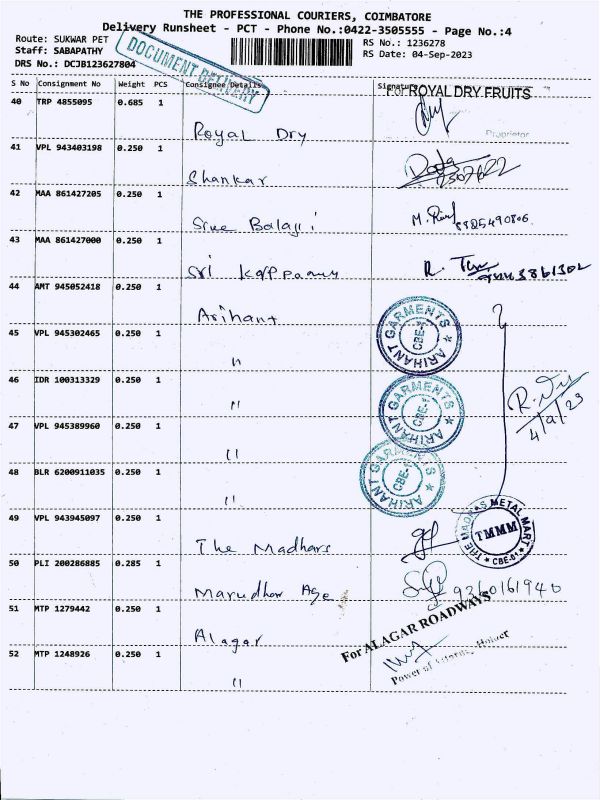 THE PROFESSIONAL COURIERS, COIMBATORE
Delivery Runsheet - PCT - Phone No.:0422-3505555 - Page No.:4
Route: SUKWAR PET
Staff: SABAPATHY
DRS No.: DCJB123627804
DOCUMENT DELIVERY
RS No.: 1236278
RS Date: 04-Sep-2023
S No Consignment No Weight PCS Consignee Details Signature
40 TRP 4855095 0.685 1
Royal Dry
For ROYAL DRY FRUITS
Proprietor
41 VPL 943403198 0.250 1
Shankar
42 MAA 861427205 0.250 1
Sree Balaji
8825490806
43 MAA 861427000 0.250 1
Sri
44 AMT 945052418 0.250 1
Arihant
45 VPL 945302465 0.250 1
"
ARIHANT GARMENTS
CBE-1
46 IDR 100313329 0.250 1
"
ARIHANT GARMENTS
CBE-1
4/9/23
47 VPL 945389960 0.250 1
"
ARIHANT GARMENTS
CBE-1
48 BLR 6200911035 0.250 1
"
49 VPL 943945097 0.250 1
The Madhars
THE MADRAS METAL MART
TMMM
CBE-01
50 PLI 200286885 0.285 1
Marudhar Age
9360161940
51 MTP 1279442 0.250 1
Alagar
For ALAGAR ROADWAYS
52 MTP 1248926 0.250 1
"
Power of Holder